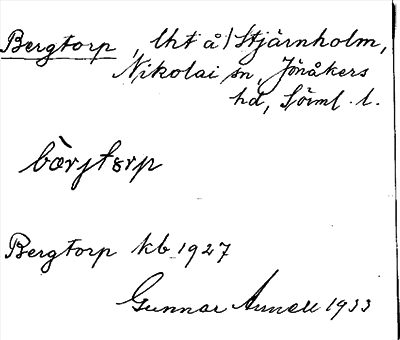 Bergtorp, lht å/ Stjärnholm,
Nikolai sn, Jönåkers
hd, Sörml. l.
bàrjtørp
Bergtorp kb 1927
Gunnar Arnell 1933